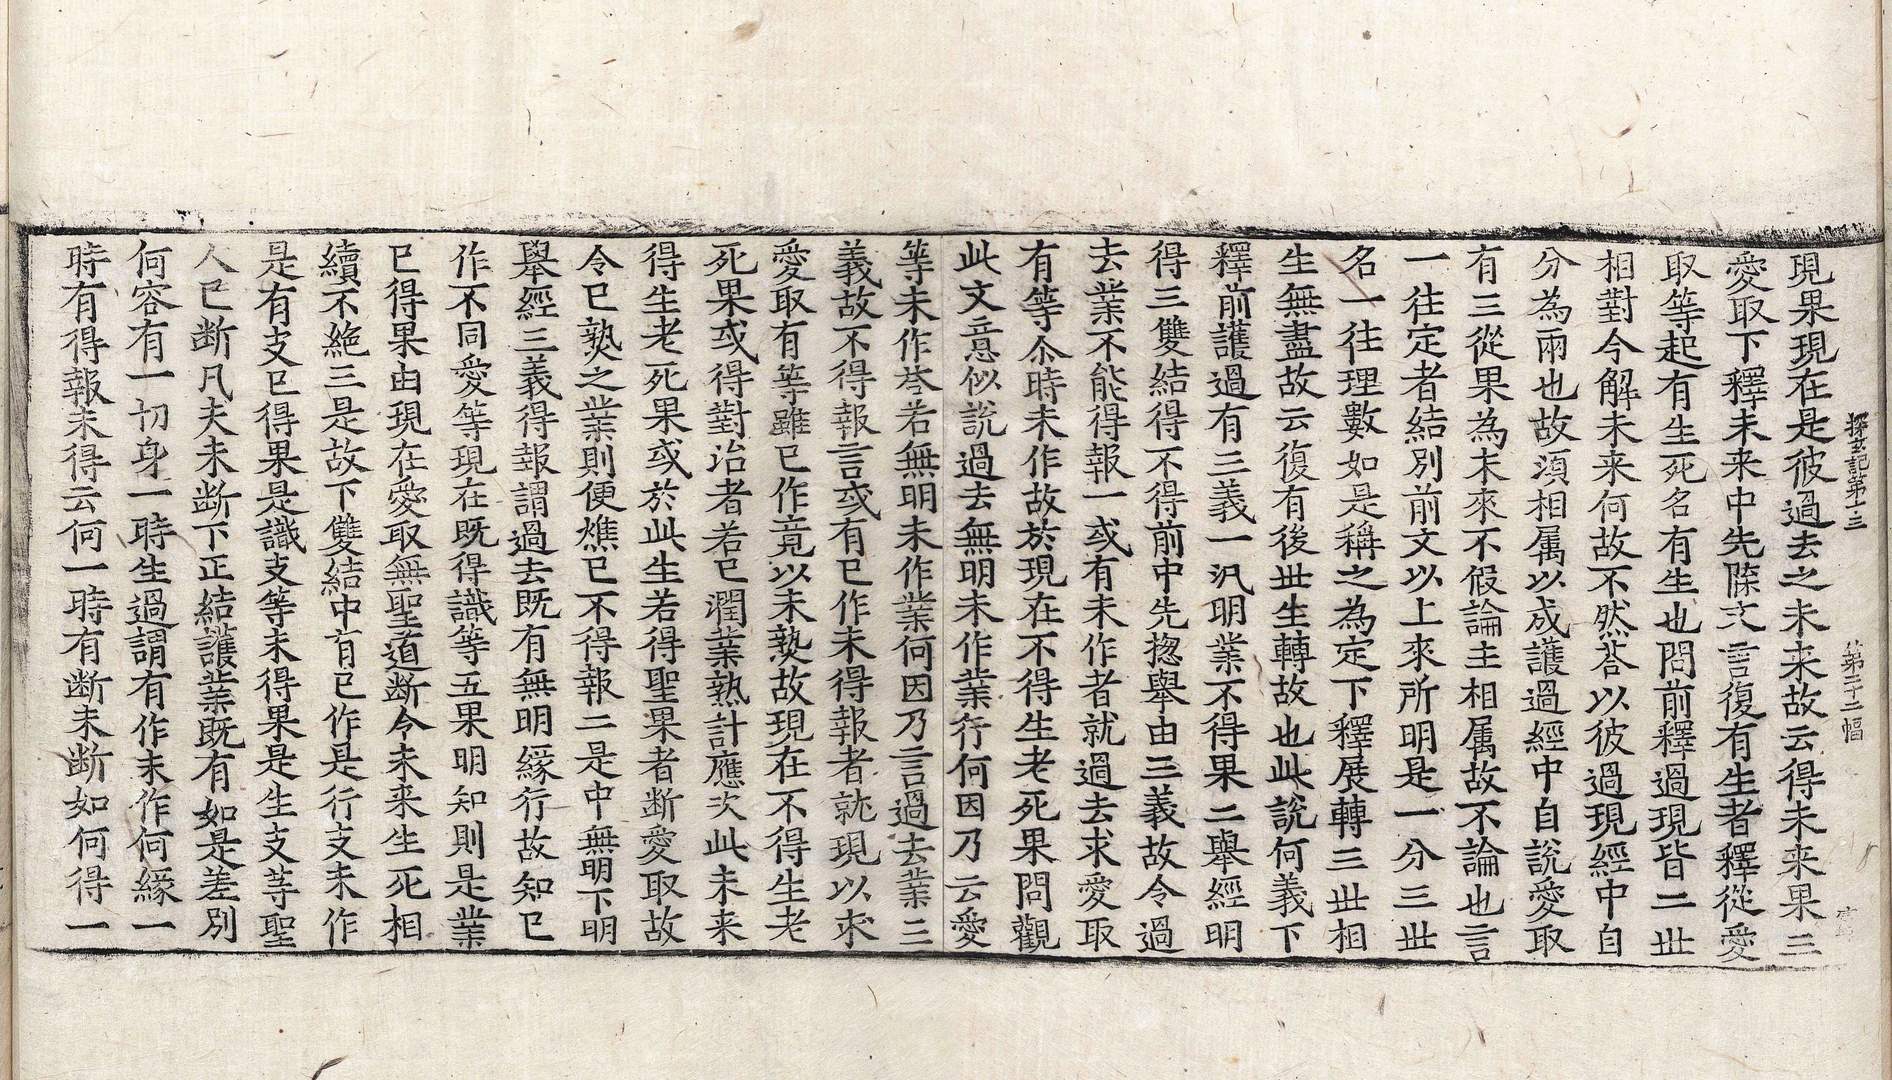 探玄記第十三 第二十二幅
現果現在是彼過去之未来故云得未来果三
愛取下釋未来中先牒文言復有生者釋從愛
取等起有生死名有生也問前釋過現皆二世
相對今解未来何故不然荅以彼過現經中自
分為兩也故湏相属以成護過經中自說愛取
有三從果為末來不假論主相属故不論也言
一往定者結別前文以上來所明是一分三世
名一往理數如是稱之為定下釋展轉三世相
生無盡故云復有後世生轉故也此說何義下
釋前護過有三義一汎明業不得果二舉經明
得三雙結得不得前中先揔舉由三義故令過
去業不能得報一或有未作者就過去求愛取
有等尒時未作故於現在不得生老死果問觀
此文意似說過去無明未作業行何因乃云愛
等未作荅若無明未作業何因乃言過去業二
義故不得報言或有已作未得報者就現以求
愛取有等雖已作竟以未熟故現在不得生老
死果或得對治者若已潤業熟計應次此未来
得生老死果或於此生若得聖果者断愛取故
令已熟之業則便燋已不得報二是中無明下明
舉經三義得報謂過去既有無明緣行故知已
作不同愛等現在既得識等五果明知則是業
已得果由現在愛取無聖道断令未来生死相
續不絶三是故下雙結中有已作是行支未作
是有支已得果是識支等未得果是生支等聖
人已断凡夫未断下正結護業既有如是差別
何容有一切身一時生過謂有作未作何緣一
時有得報未得云何一時有断未断如何得一